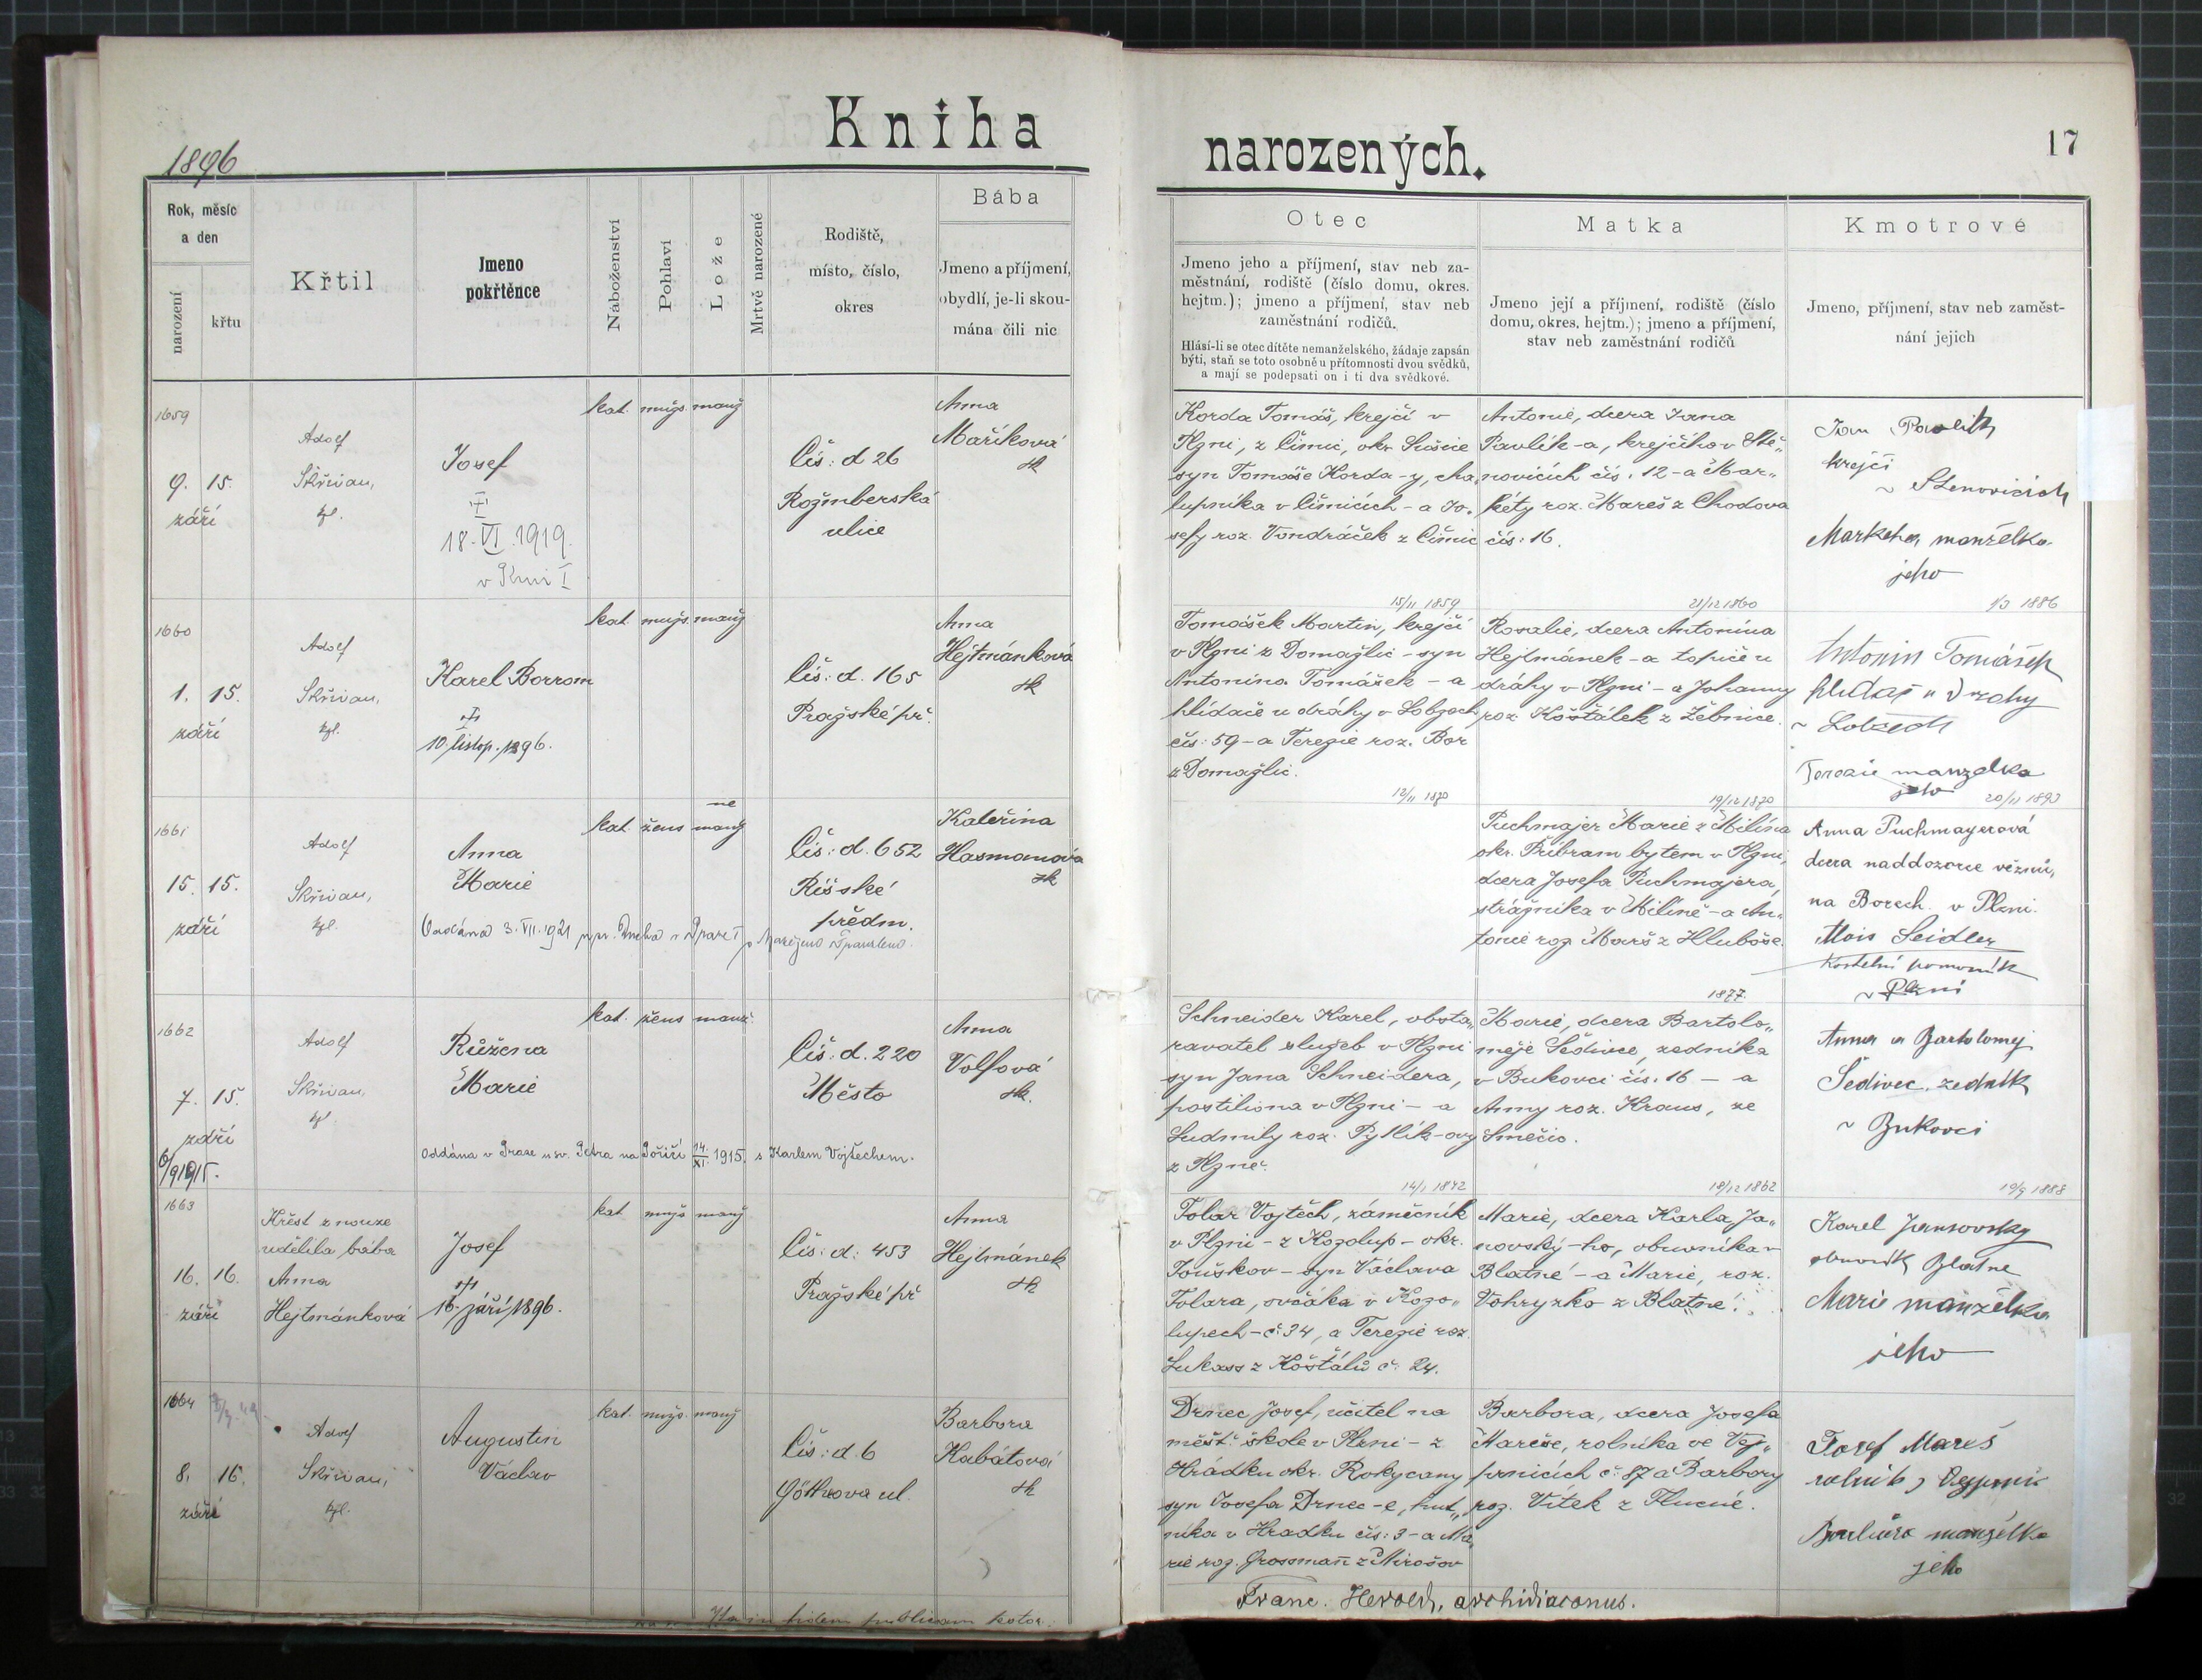 Kniha
narozených.
17
1896
Rok, měsíc
a den
narození
křtu
Křtil
Jmeno
pokřtěnce
Náboženství
Pohlaví
Lože
Mrtvě narozené
Rodiště,
místo, číslo,
okres
Bába
Jmeno a příjmení,
obydlí, je-li skou-
mána čili nic
Otec
Jmeno jeho a příjmení, stav neb za-
městnání, rodiště (číslo domu, okres.
hejtm.); jmeno a příjmení, stav neb
zaměstnání rodičů.
Hlásí-li se otec dítěte nemanželského, žádaje zapsán
býti, staň se toto osobně u přítomnosti dvou svědků,
a mají se podepsati on i ti dva svědkové.
Matka
Jmeno její a příjmení, rodiště (číslo
domu, okres, hejtm.); jmeno a příjmení,
stav neb zaměstnání rodičů
Kmotrové
Jmeno, příjmení, stav neb zaměst-
nání jejich
1659
9. 15.
září
Adolf
Skřivan,
kpl.
Josef
18. VI. 1919.
v Plzni I
kat. mužs. manž
Čís: d 26
Rožmberská
ulice
Anna
Maříková
zk
Korda Tomáš, krejčí v
Plzni, z Čímic, okr. Sušice
syn Tomáše Korda-y, cha„
lupníka v Čímicích - a Jo„
sefy roz. Vondráček z Čímic
Antonie, dcera Jana
Pavlík-a, krejčího v Ště„
novicích čís. 12 - a Mar„
kéty roz. Mareš z Chodova
čís: 16.
Jan Pavlik
krejčí
v Stenovicích
Marketa, manželka
jeho
1660
1. 15.
září
Adolf
Skřivan,
kpl.
Karel Borrom
10. listop. 1896.
kat mužs. manž
Čís: d. 165
Pražské př.
Anna
Hejtmánková
zk
15/11 1859
Tomášek Martin, krejčí
v Plzni z Domažlic - syn
Antonína Tomášek - a
hlídače u dráhy v Lobzech
čís: 59 - a Terezie roz. Bor
z Domažlic.
21/12 1860
Rosalie, dcera Antonína
Hejtmánek-a topiče u
dráhy v Plzni - a Johanny
roz Košťálek z Žebnice.
1/3 1886
Antonin Tomášek
hlidač u Drahy
v Lobzech
Terezie manzelka
jeho
1661
15. 15.
září
Adolf
Skřivan,
kpl.
Anna
Marie
Oddána 3. VII. 1921
kat žens
ne
manž
Čís: d. 652
Říšské
předm.
Kateřina
Hasmanová
zk
12/11 1870
19/12 1870
Puchmajer Marie z Milína
okr. Příbram bytem v Plzni,
dcera Josefa Puchmajera,
strážníka v Milíně - a An„
tonie roz Marš z Hluboše.
20/11 1893
Anna Puchmayerová
dcera naddozorce věznů,
na Borech v Plzni.
Alois Seidler
Kostelní pomocník
v Plzni
1662
7. 15.
září
Adolf
Skřivan,
kpl.
Růžena
Marie
Oddána v Praze u sv. Petra na Poříčí 14./XI. 1915. s Karlem Vojtěchem.
kat. žens manž.
Čís: d. 220
Město
Anna
Volfová
zk.
Schneider Karel, obsta„
ravatel služeb v Plzni
syn Jana Schneidera,
postiliona v Plzni - a
Ludmily roz. Pytlík-ovy
z Plzně.
1877.
Marie, dcera Bartolo„
měje Šedivce, zedníka
v Bukovci čís. 16 - a
Anny roz. Kraus, ze
Smečic.
Anna a Bartolomej
Šedivec, zedník
v Bukovci
1663
16. 16.
září
Křest z nouze
udělila bába
Anna
Hejtmánková
Josef
16. září 1896.
kat mužs manž
Čís: d: 453
Pražské př
Anna
Hejtmánek
zk
14/1 1842
Tolar Vojtěch, zámečník
v Plzni - z Kozolup - okr.
Touškov - syn Václava
Tolara, ovčáka v Kozo„
lupech - č: 34, a Terezie roz.
Lukass z Košťálů č: 24.
18/12 1862
Marie, dcera Karla Ja„
novský-ho, obuvníka v
Blatné - a Marie, roz.
Vohryzko z Blatné.
19/9 1888
Karel Jansovsky
obuvník Blatne
Marie manželka
jeho
1664
8. 16.
září
Adolf
Skřivan,
kpl.
Augustin
Václav
kat. mužs. manž
Čís: d. 6
Göthova ul.
Barbora
Habátová
zk
Drnec Josef, učitel na
měšť. škole v Plzni - z
Hrádku okr. Rokycany
syn Josefa Drnec-e, hut„
níka v Hradku čís: 3 - a Ma„
rie roz. Grossmann z Mirošov
Barbora, dcera Josefa
Mareše, rolníka ve Vej„
prnicích č: 87 a Barbory
roz. Vítek z Tlucné.
Josef Mareš
rolník
manželka
jeho
in fidem publicam
Franc. Herold, archidiaconus.